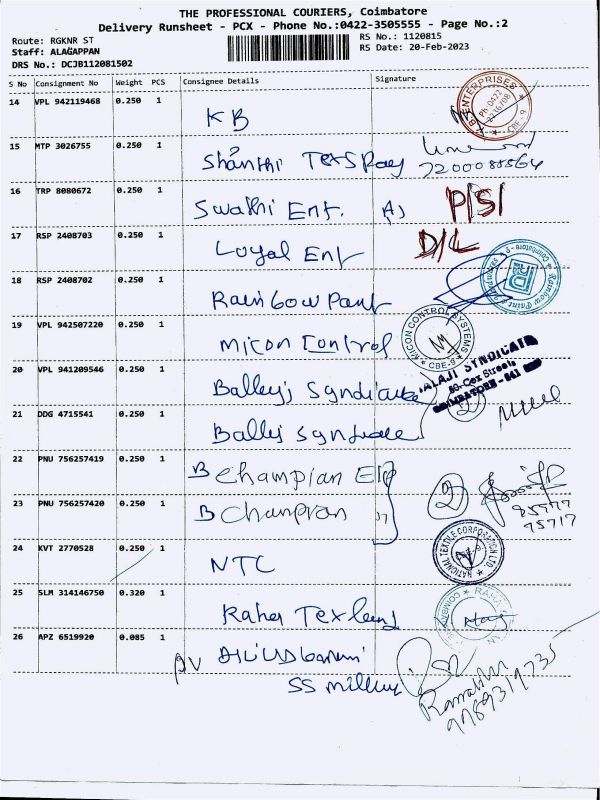 THE PROFESSIONAL COURIERS, Coimbatore
Delivery Runsheet - PCX - Phone No.:0422-3505555 - Page No.:2
Route: RGKNR ST
RS No.: 1120815
Staff: ALAGAPPAN
RS Date: 20-Feb-2023
DRS No.: DCJB112081502
S No Consignment No Weight PCS Consignee Details Signature
14 VPL 942119468 0.250 1 KB
B ENTERPRISES CBE-9
15 MTP 3026755 0.250 1 Shanthi
7200088564
16 TRP 8080672 0.250 1 Swathi Ent. P/S/
17 RSP 2408703 0.250 1 Loyal Ent D/L
18 RSP 2408702 0.250 1 Rainbow Paint
19 VPL 942507220 0.250 1 Micon Control
MICON CONTROL SYSTEMS CBE-9
20 VPL 941209546 0.250 1
ALAJI SYNDICATE
80-Cox Street
COIMBATORE-641
21 DDG 4715541 0.250 1
22 PNU 756257419 0.250 1 B Champian
2
23 PNU 756257420 0.250 1 B Champian
85777
75717
24 KVT 2770528 0.250 1 NTC
NATIONAL TEXTILE CORPORATION LTD.
25 SLM 314146750 0.320 1 Raha
26 APZ 6519920 0.085 1
SS
9789319735